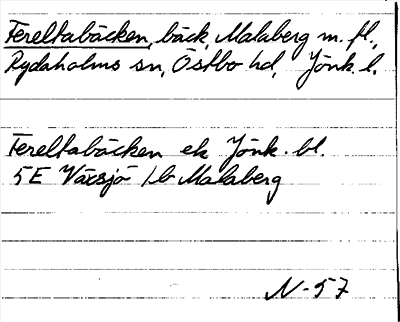 Fereltabäcken, bäck, Malaberg m. fl.,
Rydaholms sn, Östbo hd, Jönk. l.
Fereltabäcken ek Jönk. bl.
5E Växsjö 1b Malaberg
N-57